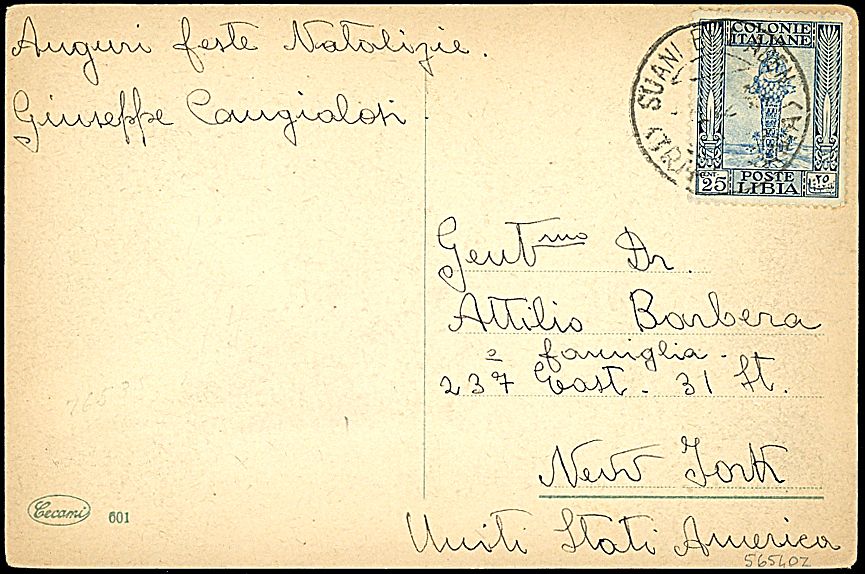 Auguri feste Natalizie.
Giuseppe Cangialosi.
SUANI
COLONIE
ITALIANE
CENT. 25 POSTE LIBIA ٢٥
Gent.mo Dr.
Attilio Barbera
e famiglia.
237 East. 31 St.
New York
Uniti Stati America
565402
7650
Cecami 601